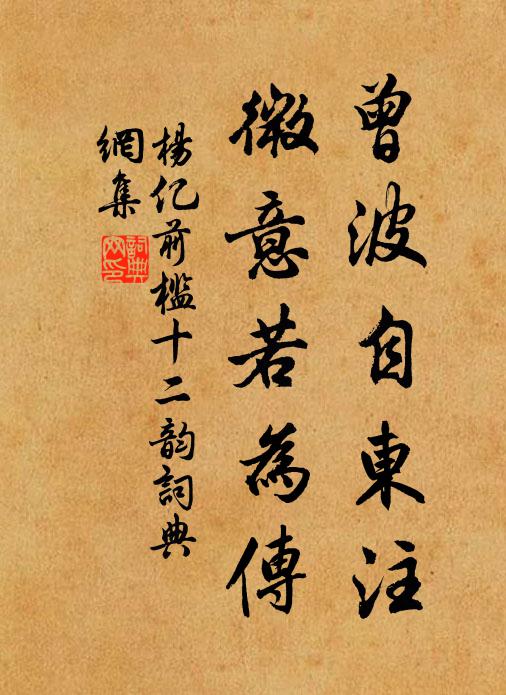 曾波自東注
微意若為傳
楊亿前檻十二韵詞典
網集
詞典网印